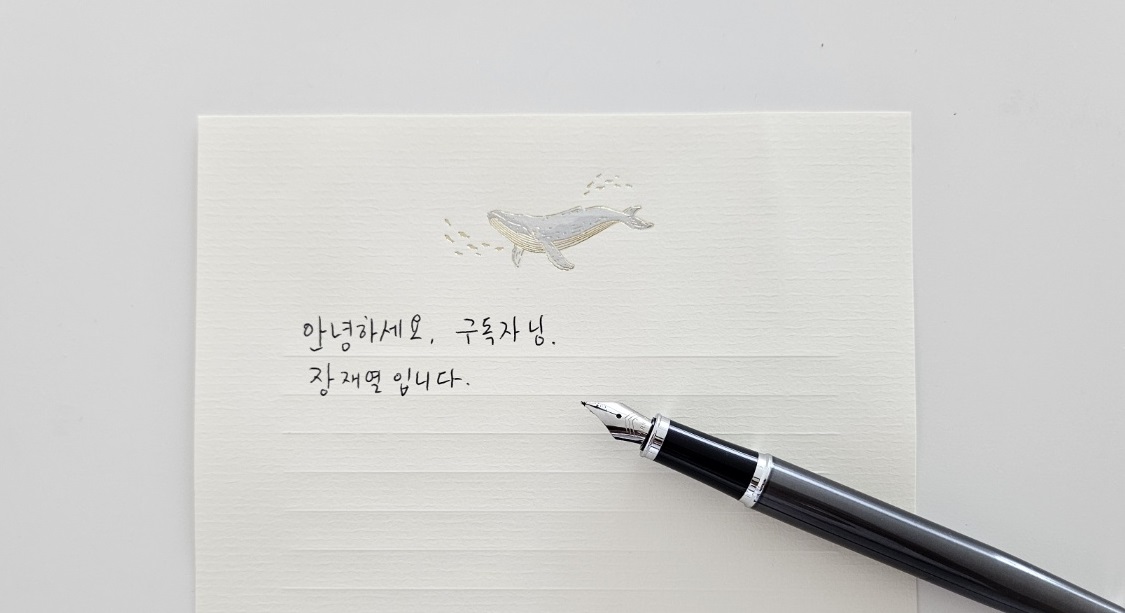 안녕하세요, 구독자님.
장재열입니다.